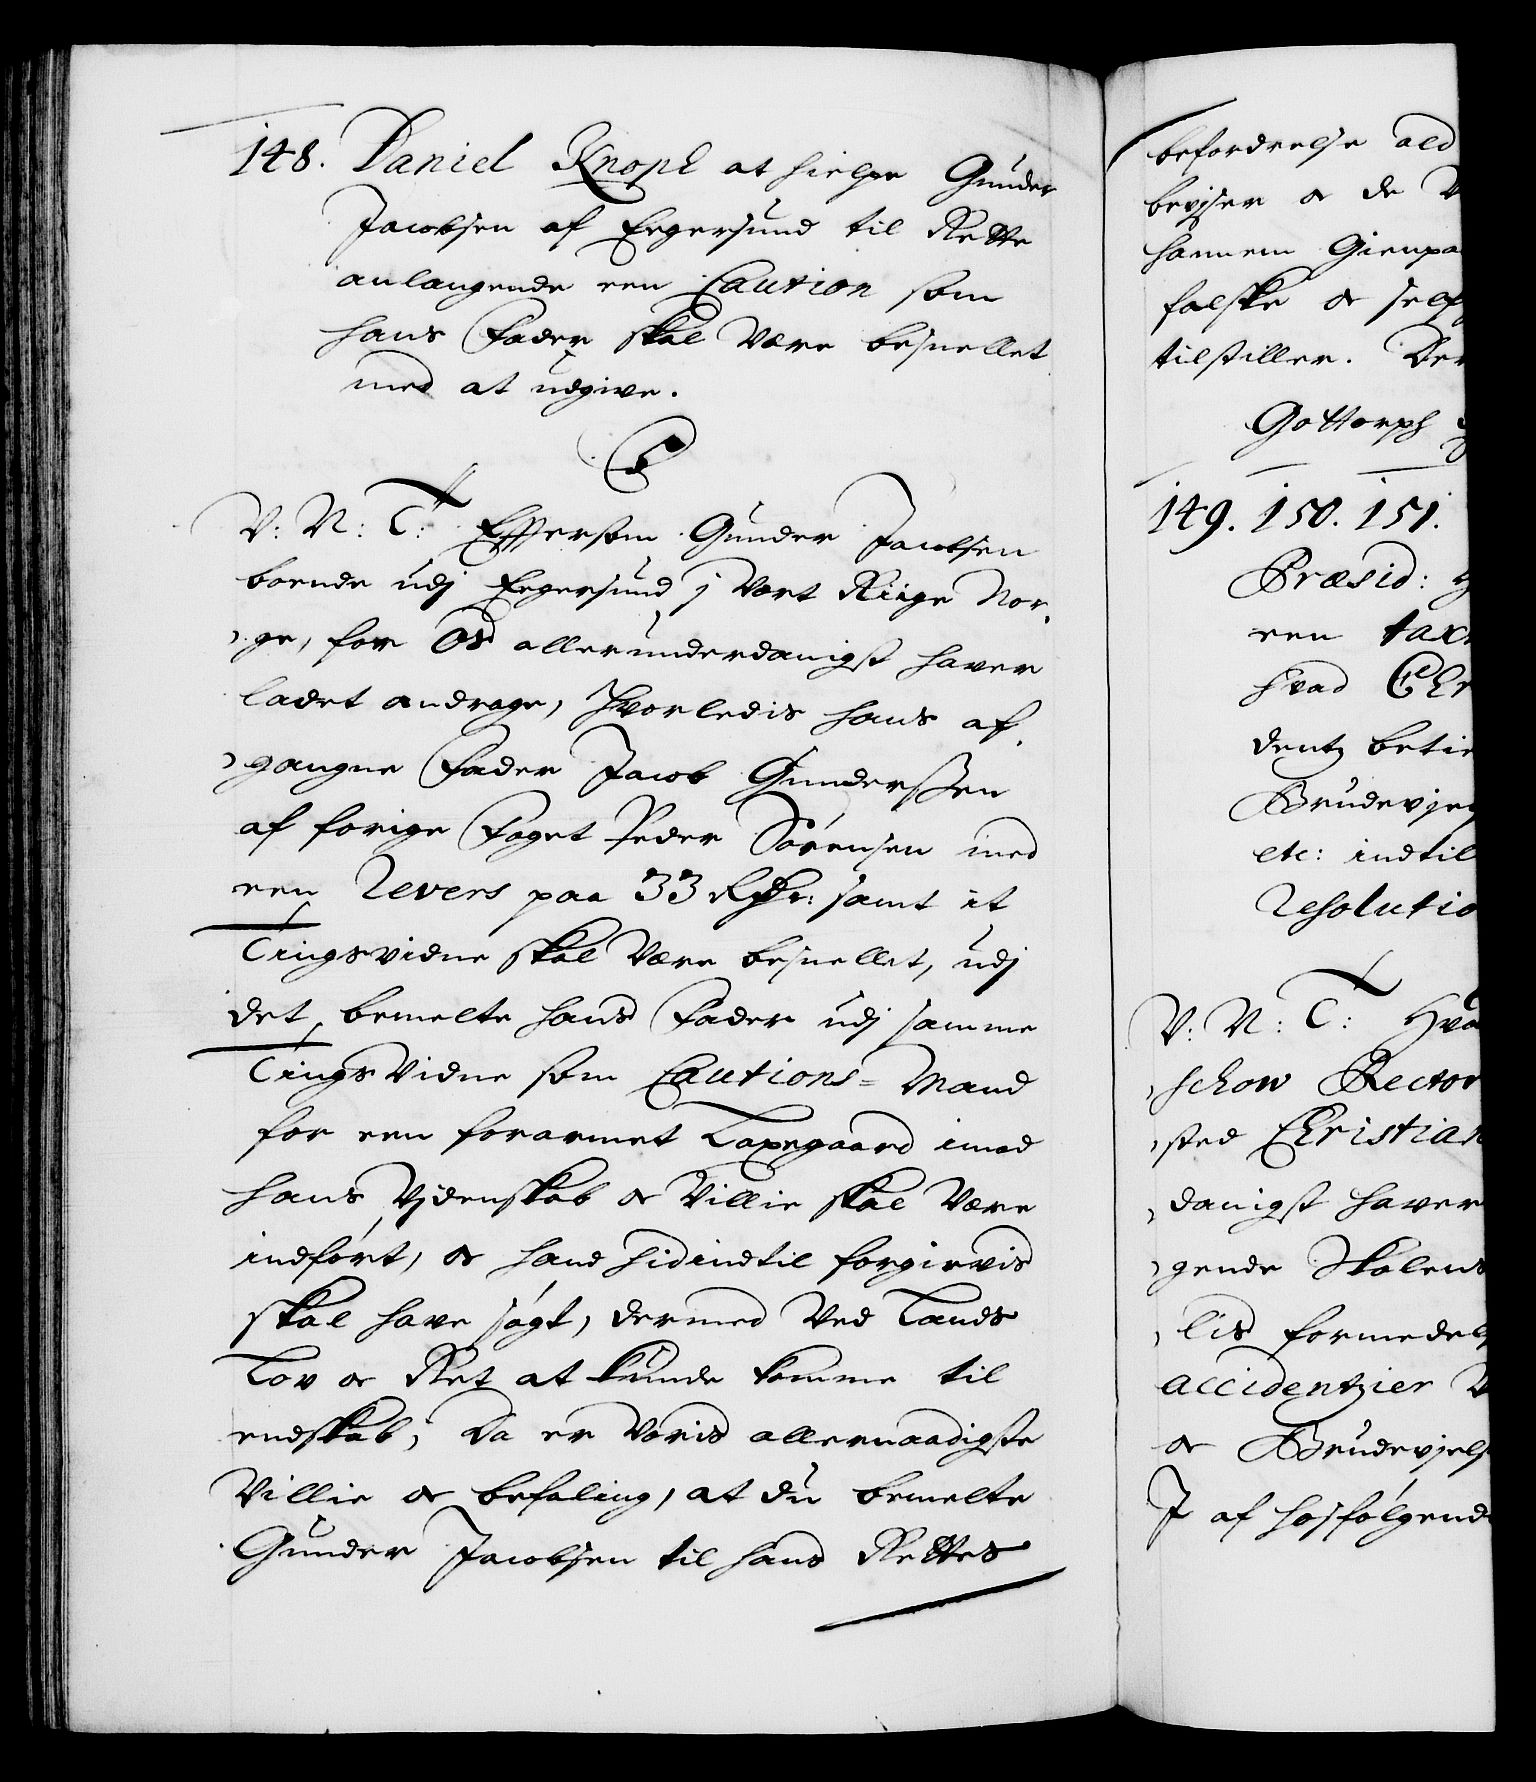 148. Daniel Knoph at hielpe Gunder
Jacobsen af Eegersund til Rette
anlangende een Caution som
hans Fader skal være besnellet
med at udgive.
V: N: T: Eftersom Gunder Jacobsen
boende udj Eegersund j Vort Riige Nor,
,ge, for Os allerunderdanigst haver
ladet andrage, hvorledis hans af,
,gangne Fader Jacob Gunderssen
af forige Foget Peder Sørensen med
een Revers paa 33 Rdr: samt it
Tingsvidne skal være besnellet, udj
det bemelte hans Fader udj samme
Tings Vidne som Cautions = Mand
for een forarmet Laxegaard imod
hans Videnskab oc Villie skal være
indført, oc hand hidindtil forgievis
skal have søgt, dermed ved Lands
Lov oc Ret at kunde komme til
endskab, Da er Voris allernaadigste
Villie oc befaling, at du bemelte
Gunder Jacobsen til hans Rettes
befordrelse ald
beviser oc de
hannem Gienpa
falske oc self
tilstiller. Der
Gottorph
149. 150. 151.
Præsid:
een tax
hvad Chr
dentz betie
Brudevje
etc: indtil
Resolutio
V: N: T: Hva
schow Rector
,sted Christian
,danigst haver
,gende Skolens
,lis formedels
accidentzier
oc Brudevjels
J af hosfølgend